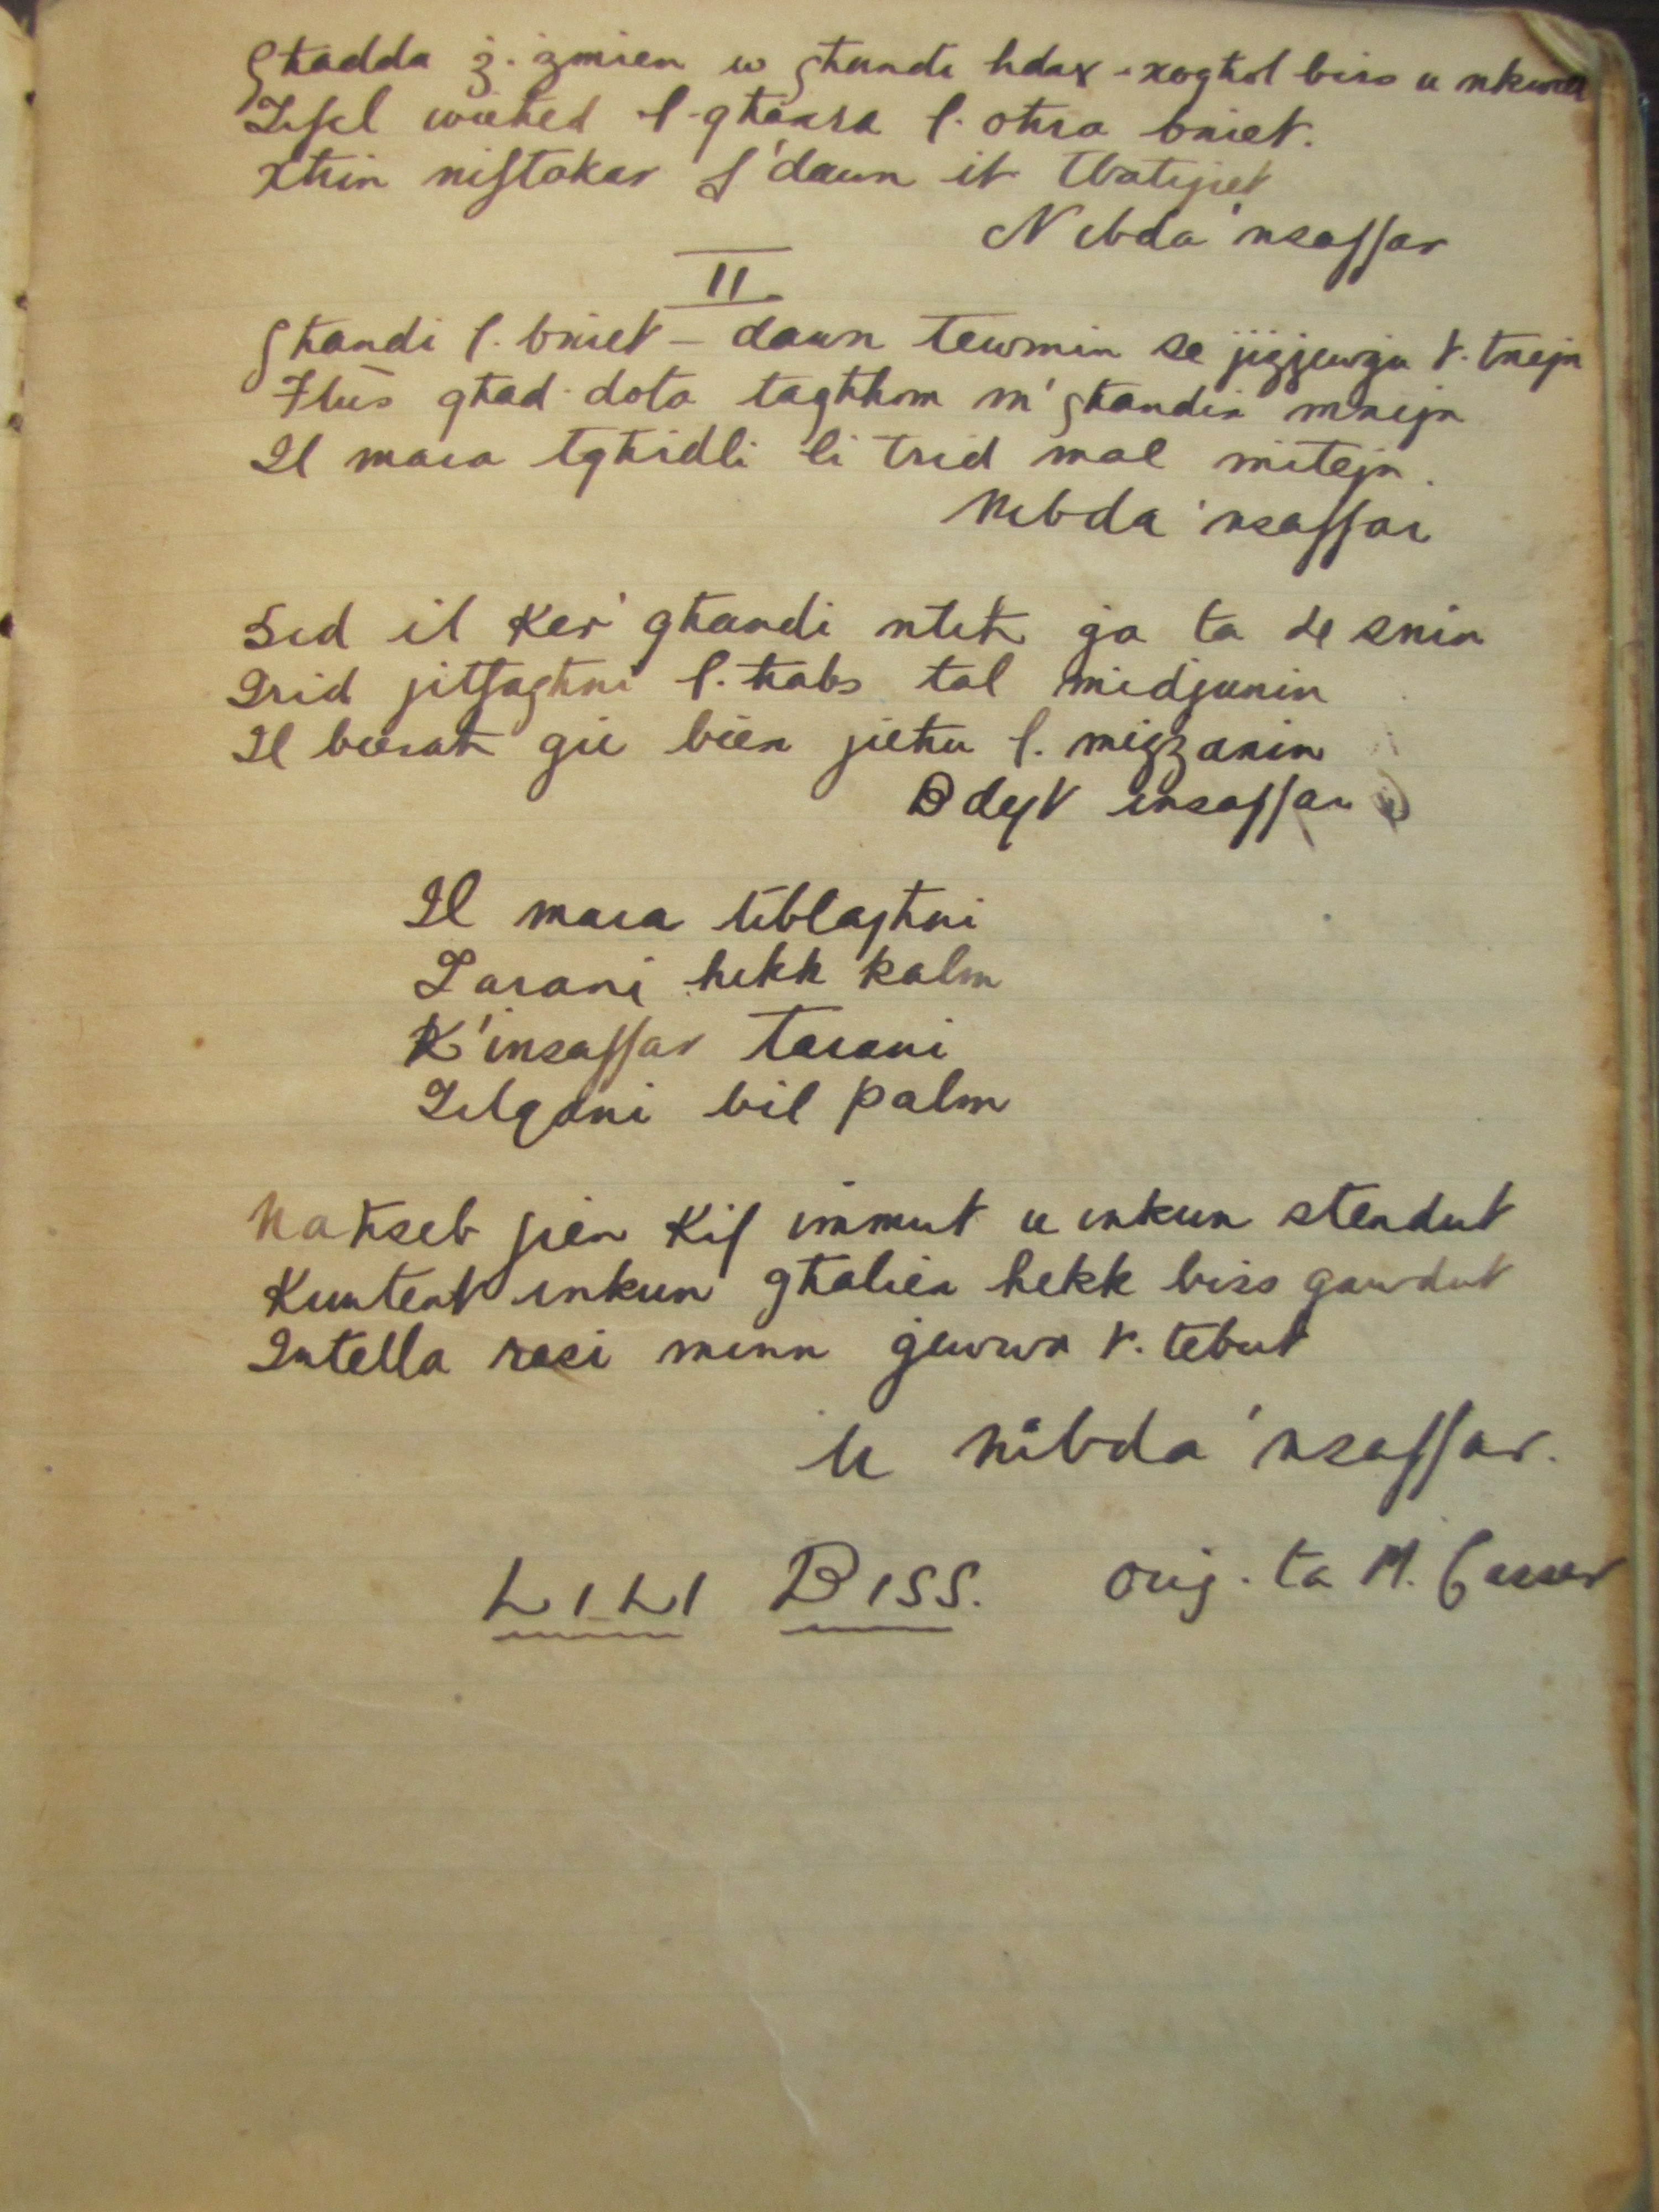 Għadda ż. żmien w għandi hdax - xogħol biss u nkwiet
Tifel wieħed l-għaxra l. oħra bniet.
Xħin niftakar f'daun it tbatijiet
Nibda 'nsaffar
II
Għandi l. bniet - daun tewmin se jiżżewġu t. tnejn
Flus għad. dota tagħhom m'għandix mnejn
Il mara tgħidli li trid mal mitejn.
Nibda 'nsaffar
Sid il Ker' għandi ntih ġa ta de snin
Irid jitfagħni l. ħabs tal midjunin
Il bieraħ ġie biex jieħu l. miżżanin
Bdejt insaffar
Il mara tiblagħni
Tarani hekk kalm
K'insaffar tarani
Tilqani bil palm
Naħseb jien Kif immut u inkun stendut
Kuntent inkun għaliex hekk biss gawdut
Intella rasi minn ġewwa t. tebut
U nibda 'nsaffar.
LILI BISS. Orig. ta M.